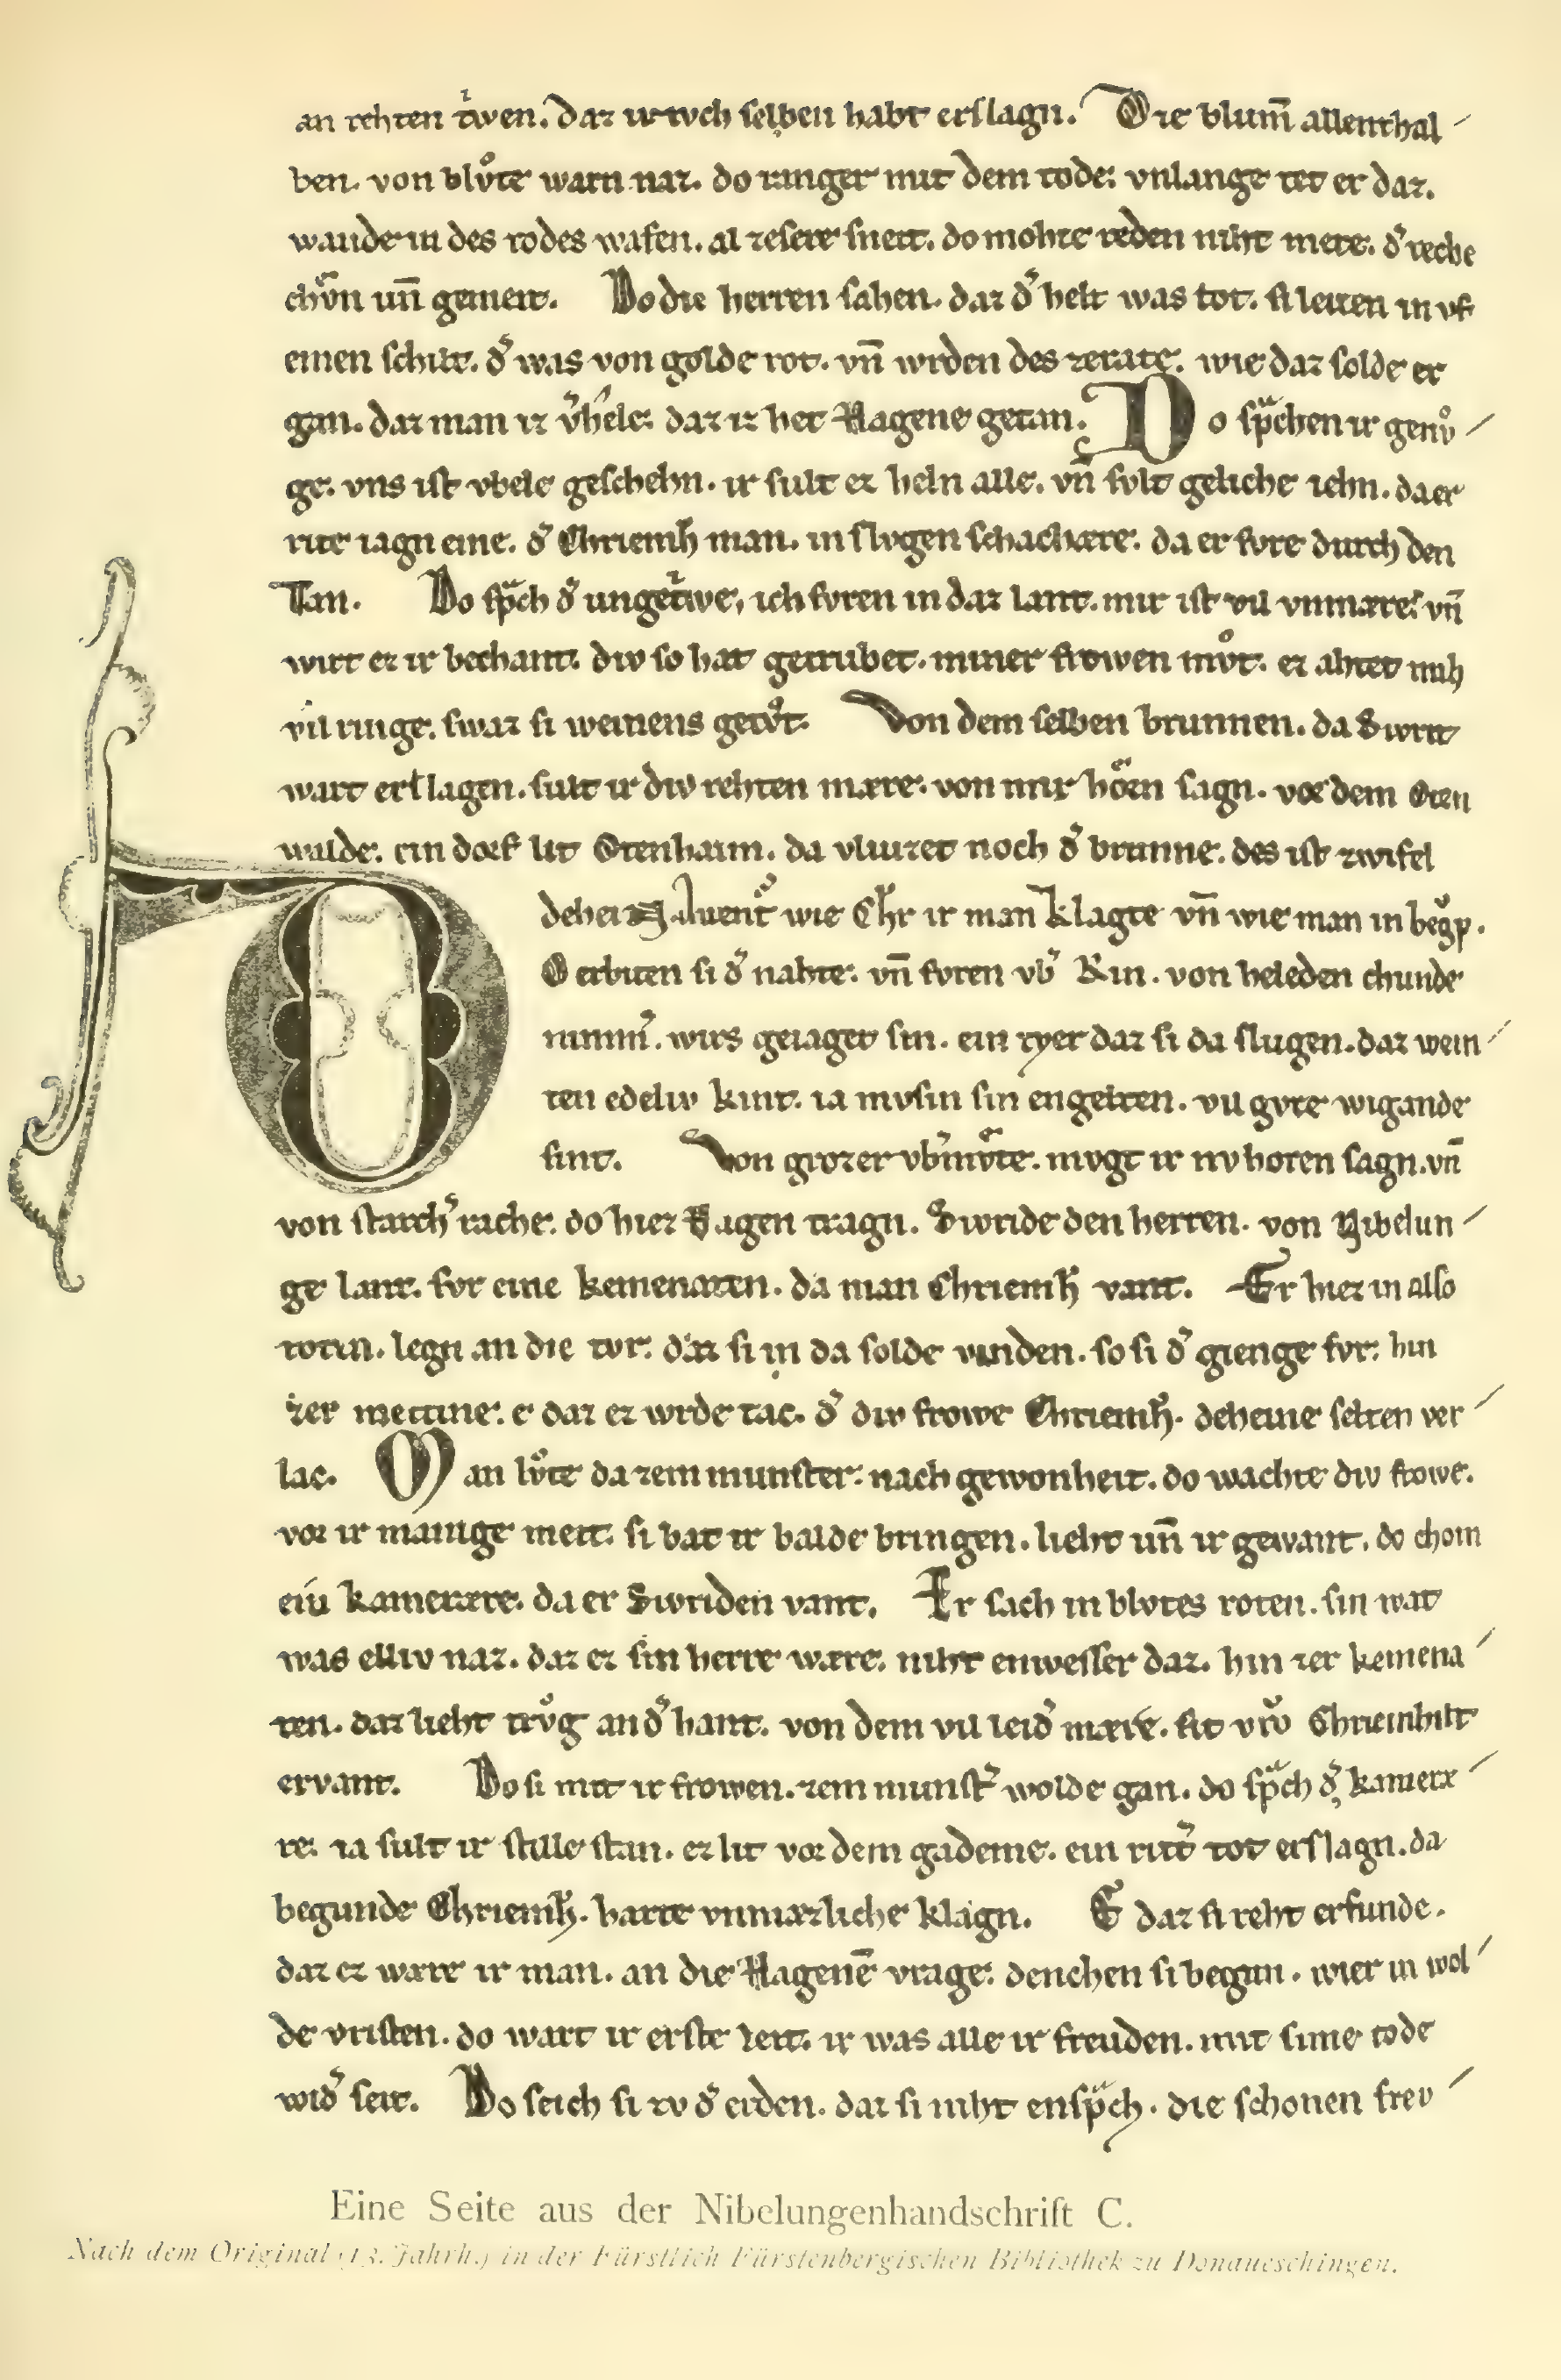 an rehten tͥwen. daz ir ivch selben habt erslagn. Die blvm̄ allenthal
ben. von blvͦte warn naz. do ranger mit dem tode. vnlange tet er daz.
wande in des todes wafen. al ze sere sneit. do mohte reden niht mere. d̾ reche
chvͤn un̄ gemeit. Do die herren sahen. daz d̾ helt was tot. si leiten in vf
einen schilt. d̾ was von golde rot. vn̄ wrden des ze rate. wie daz solde er
gan. daz man iz v̾hele. daz iz het Hagene getan. Do sp̾chen ir genvͦ
ge. vns ist vbele geschehn. ir sult ez heln alle. vn̄ svlt geliche iehn. da er
rite iagn eine. d̾ Chriemh̄ man. in slvgen schachære. da er fvre durch den
Tan. Do sp̾ch d̾ ungetͥwe, ich fvren in daz lant. mir ist vil vnmære. vn̄
wirt ez ir bechant. div so hat getrubet. miner frowen mvͦt. ez ahtet mih
vil ringe. swaz si weinens getvͦt. Von dem selben brunnen. da Sivrit
wart erslagen. sult ir div rehten mære. von mir hoͤrn sagn. vor dem Oten
walde. ein dorf lit Otenhaim. da vliuzet noch d̾ brunne. des ist zwifel
dehein. Auent̾ wie Chr̄ ir man klagte vn̄ wie man in begrvͦp.
Do erbiten si d̾ nahte. vn̄ fvren vb̾ Rin. von heleden chunde
nimm̾. wirs geiaget sin. ein tyer daz si da slugen. daz wein
ten edeliv kint. ia mvsin sin engelten. vil gvte wigande
sint. Von grozer vb̾mvͤte. mvgt ir nv horen sagn. vn̄
von starch̾ rache. do hiez Hagen tragn. Sivride den herren. von Nibelun
ge lant. fvr eine kemenaten. da man Chriemh̄ vant. Er hiez in also
toten. legn an die tvr. daz si in da solde vinden. so si d̾ gienge fvr. hin
zer mettine. e daz ez wrde tac. d̾ div frowe Chriemh̄. deheine selten ver
lac. Man lvͦte da zem munster. nach gewonheit. do wachte div frowe.
vor ir manige meit. si bat ir balde bringen. lieht un̄ ir gewant. do chom
ein kamerære. da er Sivriden vant. Er sach in blvtes roten. sin wat
was elliv naz. daz ez sin herre wære. niht enwesser daz. hin zer kemena
ten. daz lieht trvͦg an d̾ hant. von dem vil leid̾ mære. sit vrv̾ Chriemhilt
ervant. Do si mit ir frowen. zem munst̾ wolde gan. do sp̾ch d̾ kameræ
re. ia sult ir stille stan. ez lit vor dem gademe. ein ritt̾ tot erslagn. da
begunde Chriemh̄. harte vnmæzliche klagn. E daz si reht erfunde.
daz ez wære ir man. an die Hagenē vrage. denchen si began. wier in wol
de vristen. do wart ir erste leit. ir was alle ir freuden. mit sime tode
wid̾ seit. Do seich si zv d̾ erden. daz si niht ensp̾ch. die schonen frev
Eine Seite aus der Nibelungenhandschrift C.
Nach dem Original (13. Jahrh.) in der Fürstlich Fürstenbergischen Bibliothek zu Donaueschingen.